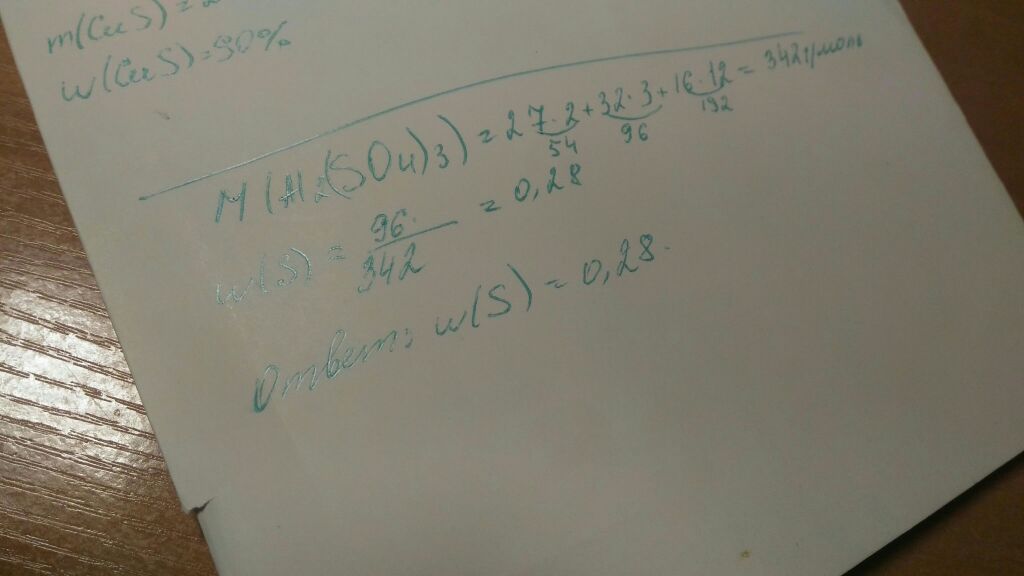 m(CuS) = 2
w(CuS) = 90%
M(Al2(SO4)3) = 27·2 + 32·3 + 16·12 = 342 г/моль
54 96 192
w(S) = 96/342 = 0,28
Ответ: w(S) = 0,28.